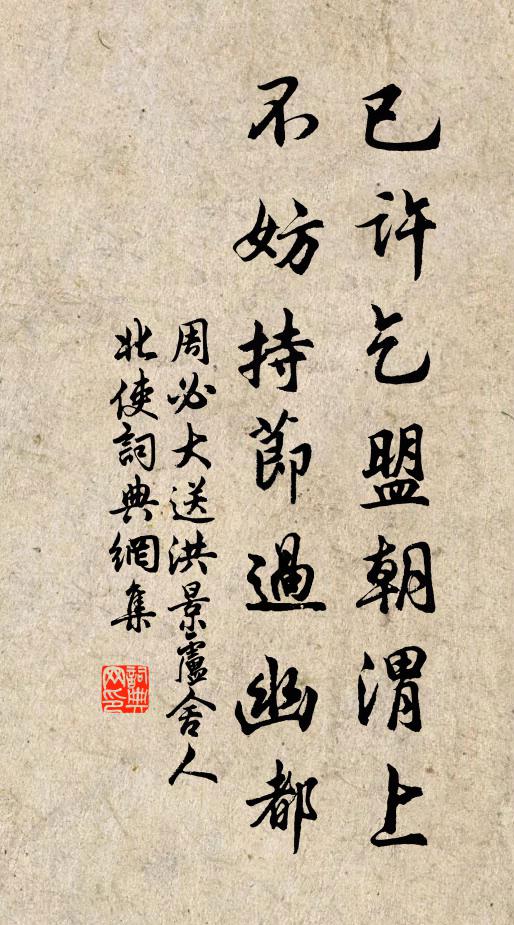 已許乞盟朝渭上
不妨持節過幽都
周必大送洪景盧舍人
北使詞典網集
詞典
网印